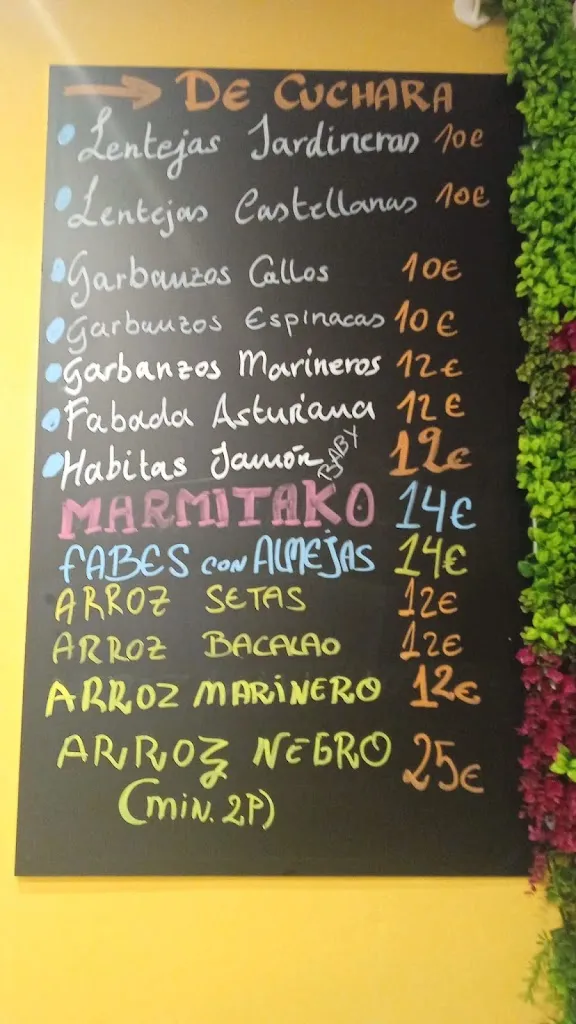 DE CUCHARA
Lentejas Jardineras 10€
Lentejas Castellanas 10€
Garbanzos Callos 10€
Garbanzos Espinacas 10€
Garbanzos Marineros 12€
Fabada Asturiana 12€
Habitas Jamón BABY 12€
MARMITAKO 14€
FABES CON ALMEJAS 14€
ARROZ SETAS 12€
ARROZ BACALAO 12€
ARROZ MARINERO 12€
ARROZ NEGRO 25€
(MIN. 2P)